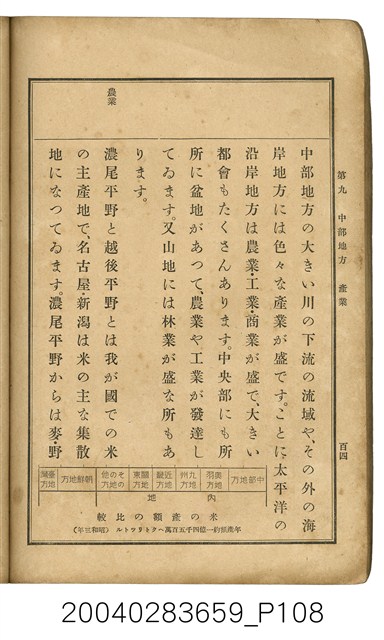 第九 中部地方 産業
百四
中部地方の大きい川の下流の流域や、その外の海
岸地方には色々な産業が盛です。ことに太平洋の
沿岸地方は農業・工業・商業が盛で、大きい
都會もたくさんあります。中央部にも所
所に盆地があつて、農業や工業が發達し
てゐます。又山地には林業が盛な所もあ
ります。
農業
濃尾平野と越後平野とは我が國での米
の主産地で、名古屋・新潟は米の主な集散
地になつてゐます。濃尾平野からは麥・野
中部地方
奥羽地方
九州地方
近畿地方
關東地方
その他の地方
朝鮮地方
臺灣地方
内地
米の産額の比較
年産額約一億四千五百萬ヘクトリットル（昭和三年）
20040283659_P108